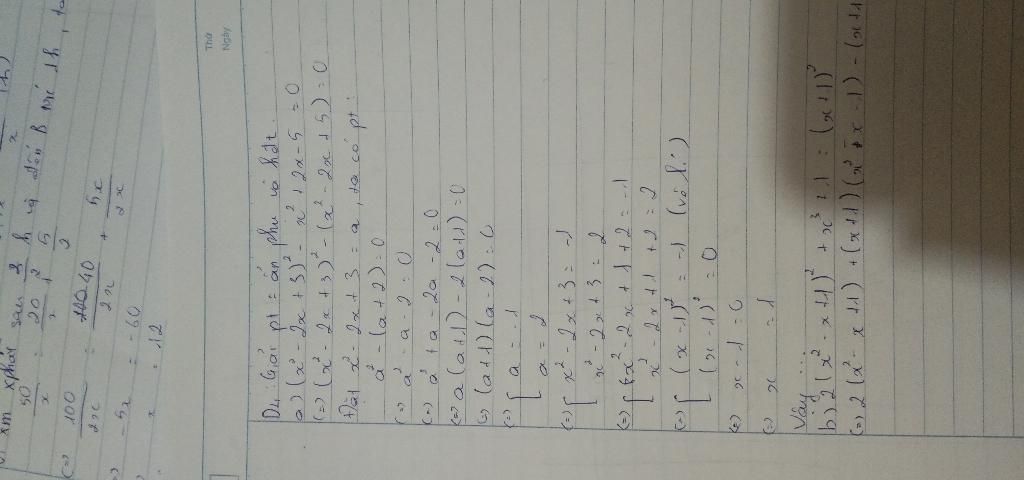 xm xphát sau
50
x
20
x
5
2
h và đến B trc 1h, ta
(=) 100
2x
40
2x
+ 5x
2x
-5x = -60
x = 12
Thứ
Ngày
D4: Giải pt = ẩn phụ và hđt.
a) (x² - 2x + 3)² - x² + 2x - 5 = 0
(=) (x² - 2x + 3)² - (x² - 2x + 5) = 0
Đặt x² - 2x + 3 = a, ta có pt:
a² - (a + 2) = 0
(=) a² - a - 2 = 0
(=) a² + a - 2a - 2 = 0
(=) a(a+1) - 2(a+1) = 0
(=) (a+1)(a-2) = 0
(=) [ a = -1
a = 2
(=) [ x² - 2x + 3 = -1
x² - 2x + 3 = 2
(=) [ x² - 2x + 1 + 2 = -1
x² - 2x + 1 + 2 = 2
(=) [ (x - 1)² = -1 (vô lí)
(x - 1)² = 0
(=) x - 1 = 0
(=) x = 1
Vậy ...
b) 2(x² - x + 1)² + x³ + 1 = (x + 1)²
(=) 2(x² - x + 1) + (x+1)(x² + x - 1) - (x+1